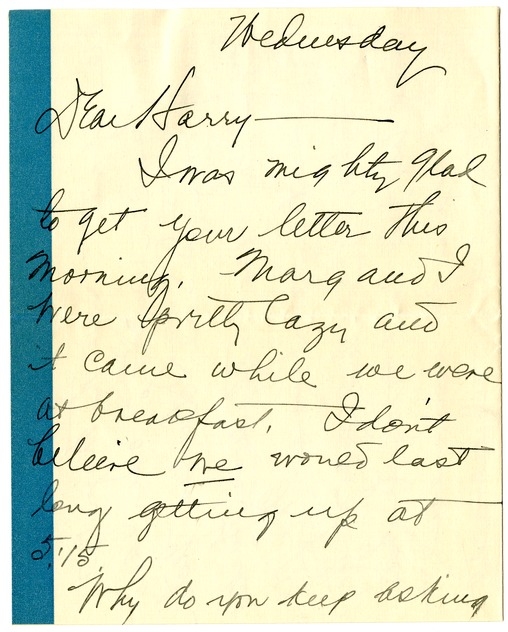 Wednesday
Dear Harry —
I was mighty glad
to get your letter this
morning. Marg and I
were pretty lazy and
it came while we were
at breakfast. I don't
believe we would last
long getting up at
5:15.
Why do you keep asking